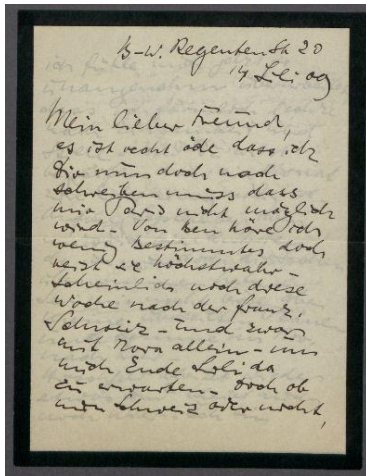 B-W. Regenten Str 20
14 Juli 09
Mein lieber Freund,
es ist recht öde dass ich
Dir nun doch noch
schreiben muss dass
mir Paris nicht möglich
wird - Von höre ich
wenig Bestimmtes doch
reist sie höchstwahr-
scheinlich noch diese
Woche nach der franz.
Schweiz - und zwar
mit allein - um
mich Ende Juli da
zu erwarten - Doch ob
nun Schweiz oder nicht,